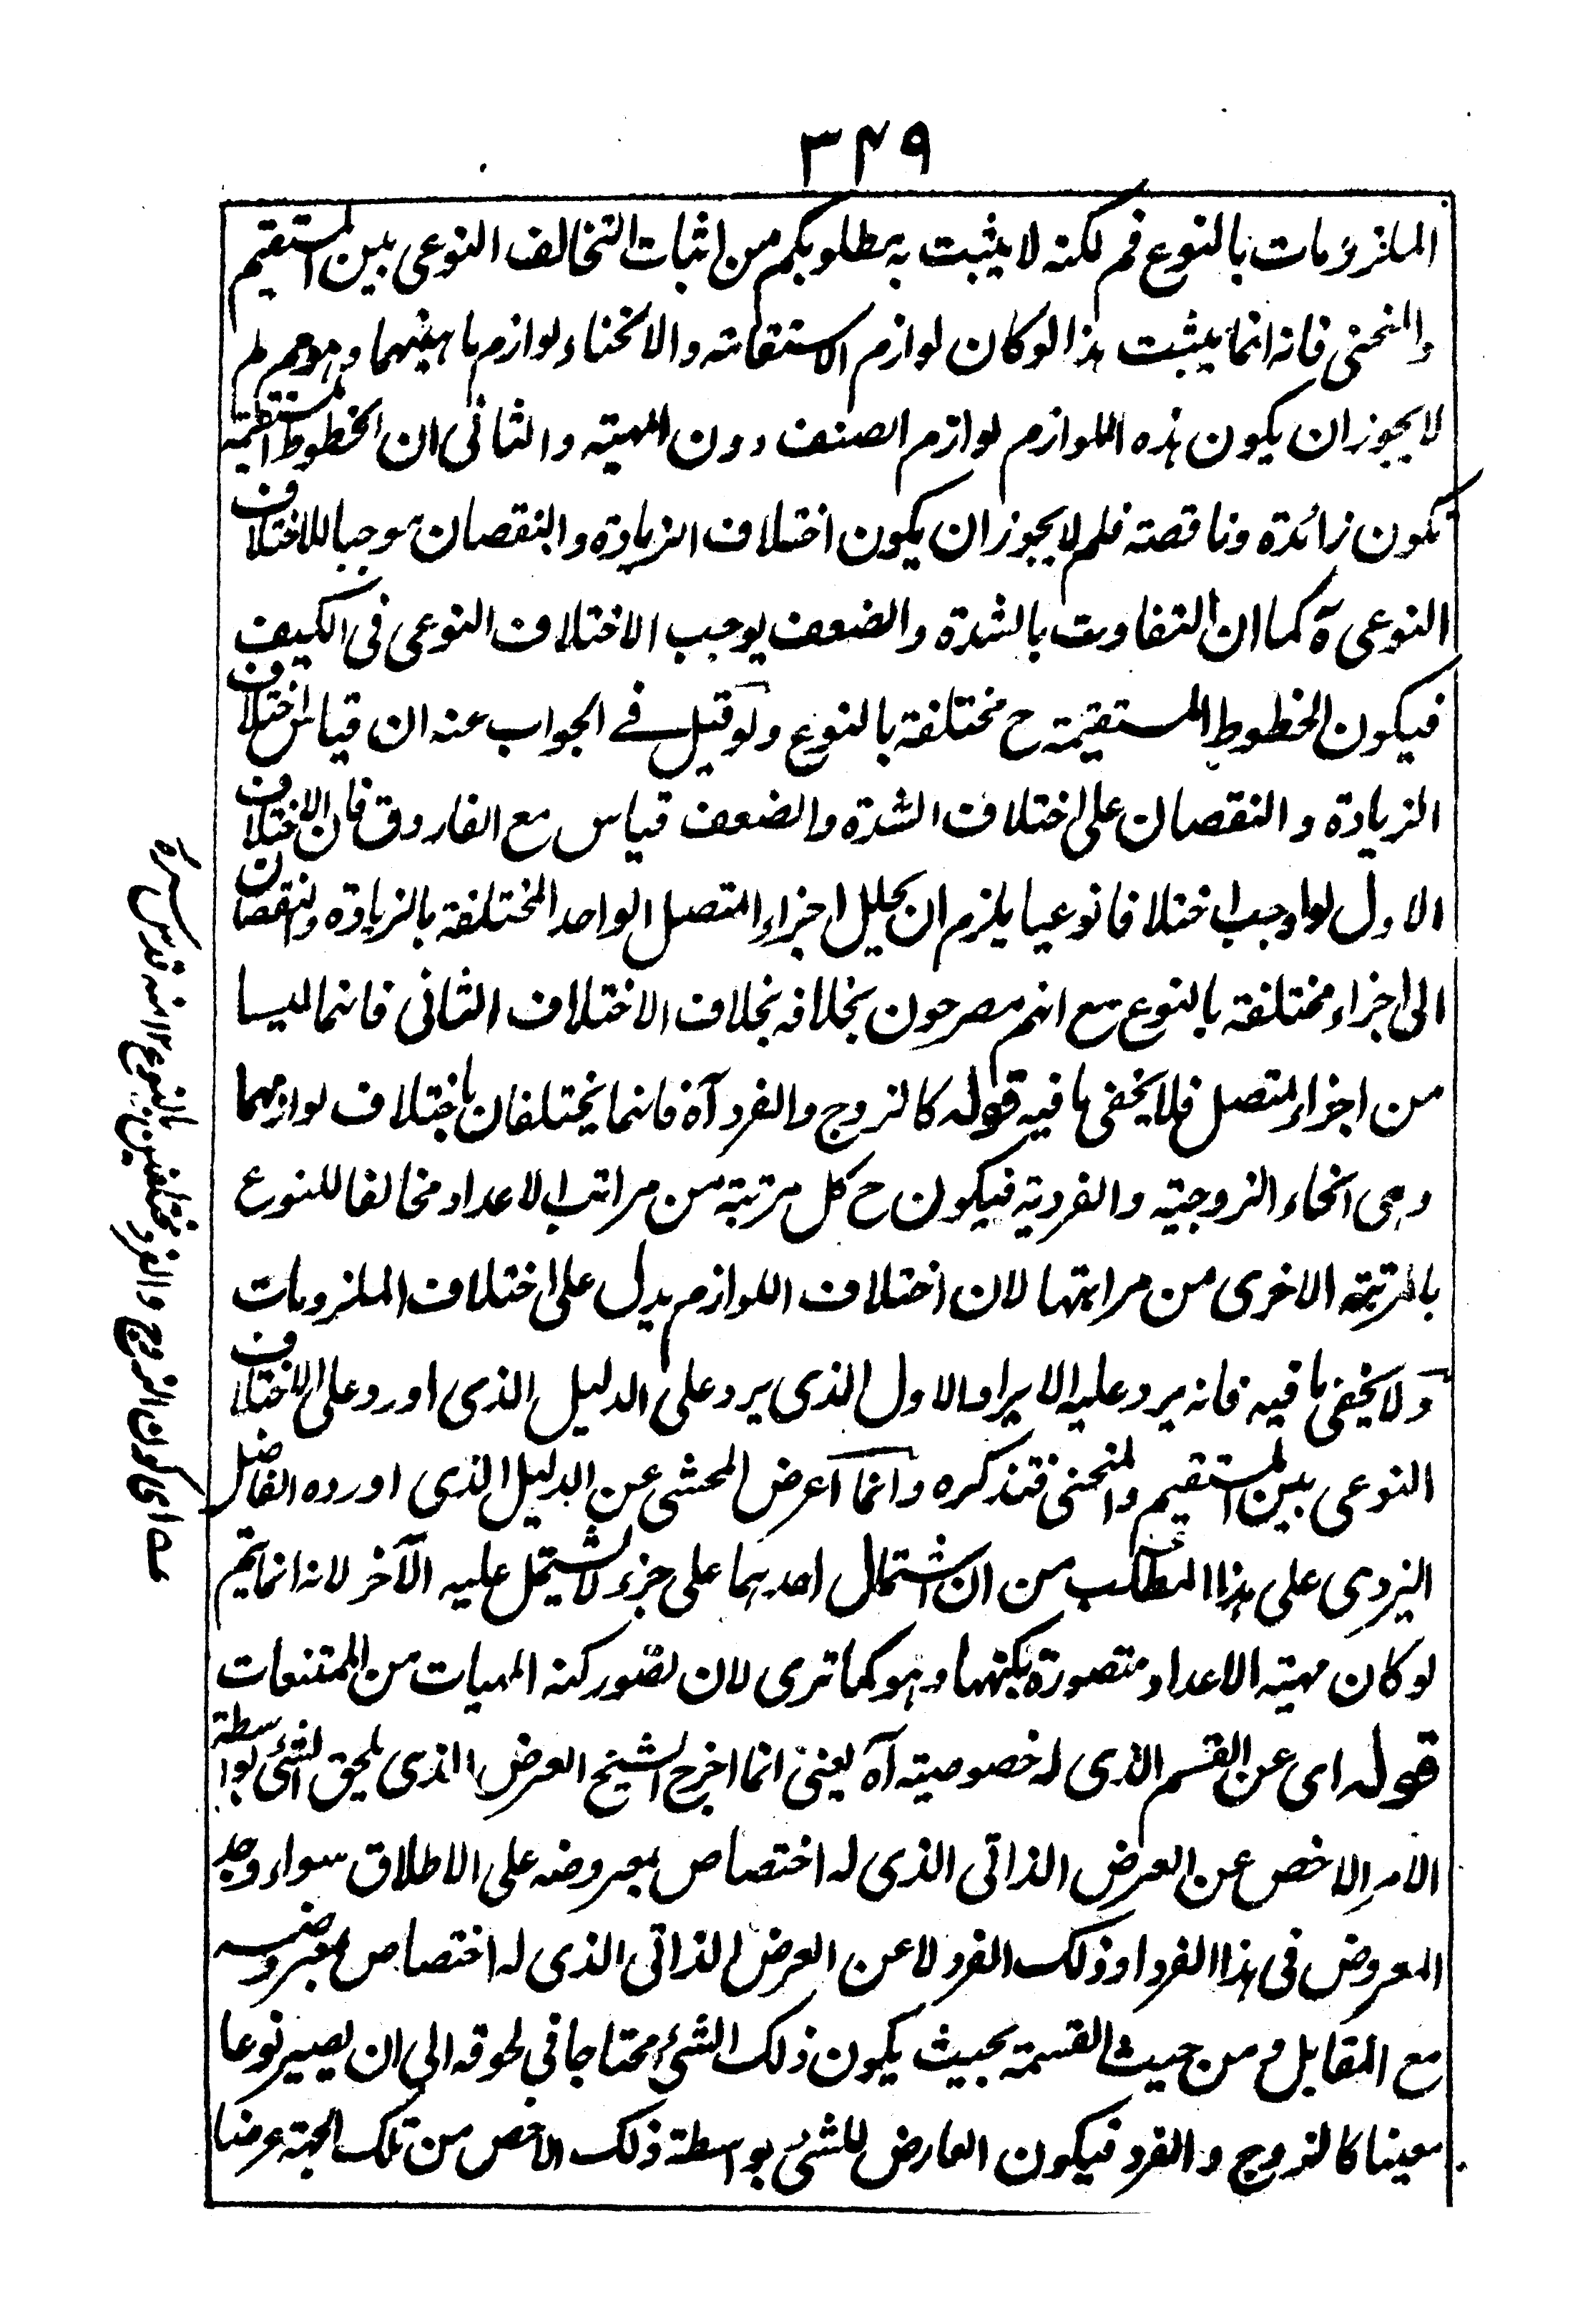 ٣٤٩
الملزومات بالنوع فم لكنه لا يثبت به مطلوبكم من اثبات التخالف النوعى بين المستقيم
والمنحنى فانه انما يثبت هذا لو كان لوازم الاستقامته والانحناء لوازم ماهيتهما وهو مم لم
لا يجوز ان يكون هذه اللوازم لوازم الصنف دون المهية والثانى ان الخطوط المستقيمة
تكون زائدة وناقصته فلم لا يجوز ان يكون اختلاف الزيادة والنقصان موجبا للاختلاف
النوعى آه كما ان التفاوت بالشدة والضعف يوجب الاختلاف النوعى فى الكيف
فيكون الخطوط المستقيمة ح مختلفة بالنوع ولو قيل فے الجواب عنه ان قياس اختلاف
الزيادة و النقصان على اختلاف الشدة والضعف قياس مع الفاروق فان الاختلاف
الاول لو اوجب اختلافا نوعيا يلزم ان يحلل اجزاء المتصل الواحد المختلفة بالزيادة والنقصان
الى اجزاء مختلفة بالنوع مع انهم مصرحون بخلافه بخلاف الاختلاف الثانى فانهما ليسا
من اجزاء المتصل فلا يخفى ما فيه قوله كالزوج والفرد آه فانهما يختلفان باختلاف لوازمهما
وهى انحاء الزوجية والفردية فيكون ح كل مرتبة من مراتب الاعداد مخالفا للنوع
بالمرتبة الاخرى من مراتبها لان اختلاف اللوازم يدل على اختلاف الملزومات
ولا يخفى ما فيه فانه يرد عليه الايراد الاول الذى يرد على الدليل الذى اورد على الاختلاف
النوعى بين المستقيم والمنحنى فتذكره وانما اعرض المحشى عن الدليل الذى اورده الفاضل
اليزدى على هذا المطلب من ان اشتمال احدهما على جزء لا يشتمل عليه الآخر لانه انما يتم
لو كان مهية الاعداد متصورة بكنهها وهو كما ترى لان تصور كنه المهيات من الممتنعات
قوله اى عن القسم الذى له خصوصيته آه يعنى انما اخرج الشيخ العرض الذى يلحق الشئ بواسطة
الامر الاخص عن العرض الذاتى الذى له اختصاص بمعروضه على الاطلاق سواء وجد
المعروض فى هذا الفرد او ذلك الفرد لا عن العرض الذاتى الذى له اختصاص بمعروضه
مع المقابل و من حيث القسمة بحيث يكون ذلك الشئ محتاجا فى لحوقه الى ان يصير نوعا
معينا كالزوج والفرد فيكون العارض للشئ بواسطة ذلك الاخص من تلك الجهة عرضا
اى كون الزوج والفرد مختلفين بالنوع ١٢ منه قدس سره